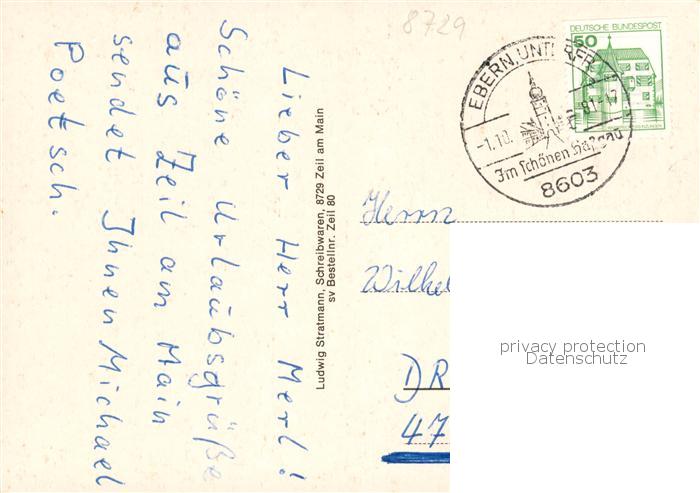 8729
DEUTSCHE BUNDESPOST
50
EBERN, UNTERFR
-1.10.
81-17
Im schönen Haßgau
8603
Lieber Herr Merl!
Schöne Urlaubsgrüße
aus Zeil am Main
sendet Ihnen Michael
Poetsch.
Ludwig Stratmann, Schreibwaren, 8729 Zeil am Main
sv Bestellnr. Zeil 80
Herrn
Wilhel
DR
47
privacy protection
Datenschutz